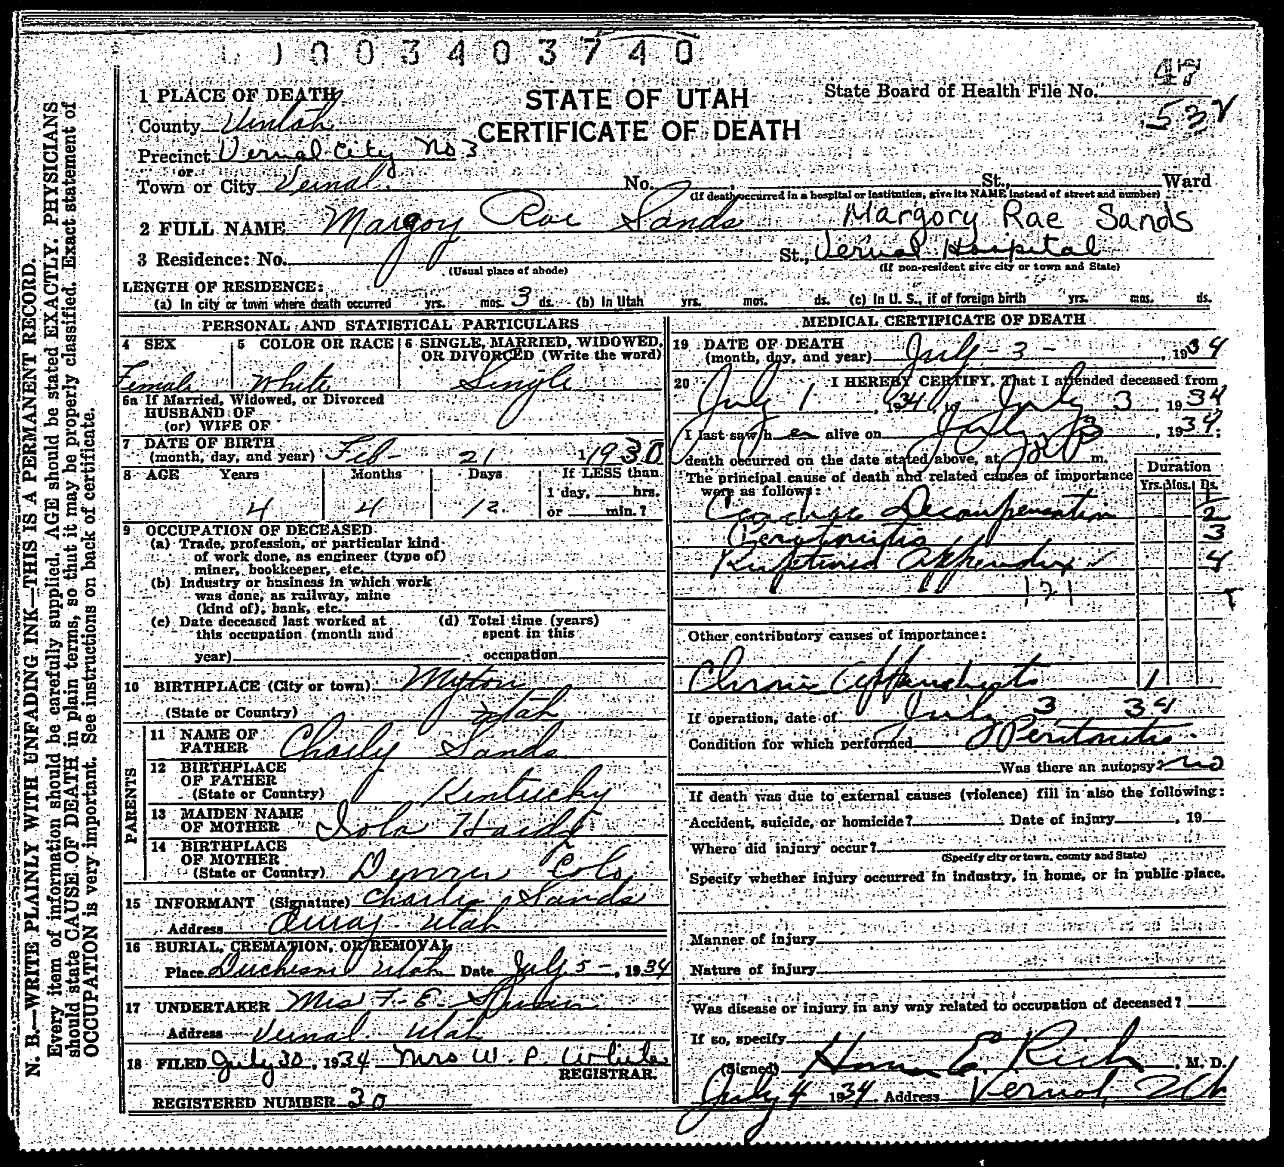 0 0 3 4 0 3 7 4 0
47
1 PLACE OF DEATH
STATE OF UTAH
State Board of Health File No.
County Uintah
CERTIFICATE OF DEATH
532
Precinct Vernal City No 3
or
Town or City Vernal. No. , St., Ward
(If death occurred in a hospital or institution, give its NAME instead of street and number)
2 FULL NAME Margory Rae Sands Margory Rae Sands
3 Residence: No. St., Vernal Hospital
(Usual place of abode) (If non-resident give city or town and State)
LENGTH OF RESIDENCE:
(a) In city or town where death occurred yrs. mos. 3 ds. (b) In Utah yrs. mos. ds. (c) In U. S., if of foreign birth yrs. mos. ds.
PERSONAL AND STATISTICAL PARTICULARS
4 SEX 5 COLOR OR RACE 6 SINGLE, MARRIED, WIDOWED,
OR DIVORCED (Write the word)
Female White Single
6a If Married, Widowed, or Divorced
HUSBAND OF
(or) WIFE OF
7 DATE OF BIRTH
(month, day, and year) Feb- 21 1930
8 AGE Years Months Days If LESS than
1 day, hrs.
4 4 12 or min.?
9 OCCUPATION OF DECEASED
(a) Trade, profession, or particular kind
of work done, as engineer (type of)
miner, bookkeeper, etc.
(b) Industry or business in which work
was done, as railway, mine
(kind of), bank, etc.
(c) Date deceased last worked at (d) Total time (years)
this occupation (month and spent in this
year) occupation
10 BIRTHPLACE (City or town) Myton
(State or Country) Utah
PARENTS
11 NAME OF
FATHER Charly Sands
12 BIRTHPLACE
OF FATHER
(State or Country) Kentucky
13 MAIDEN NAME
OF MOTHER Iola Hardy
14 BIRTHPLACE
OF MOTHER
(State or Country) Denver Colo
15 INFORMANT (Signature) Charlie Sands
Address Ouray Utah
16 BURIAL, CREMATION, OR REMOVAL
Place Duchesne Utah Date July 5-, 1934
17 UNDERTAKER Mrs F. E.
Address Vernal. Utah
18 FILED July 30, 1934 Mrs W. P. White
REGISTRAR.
REGISTERED NUMBER 30
MEDICAL CERTIFICATE OF DEATH
19 DATE OF DEATH
(month, day, and year) July-3-, 1934
20 I HEREBY CERTIFY, That I attended deceased from
July 1, 1934, to July 3, 1934
I last saw her alive on July 3, 1934;
death occurred on the date stated above, at m.
The principal cause of death and related causes of importance
were as follows:
Duration
Yrs. Mos. Ds.
Cardiac Decompensation 1/2
Peritonitis 3
Ruptured Appendix 4
121
Other contributory causes of importance:
Chronic Appendicitis 1
If operation, date of July 3 34
Condition for which performed Peritonitis.
Was there an autopsy? no
If death was due to external causes (violence) fill in also the following:
Accident, suicide, or homicide? Date of injury , 19
Where did injury occur?
(Specify city or town, county and State)
Specify whether injury occurred in industry, in home, or in public place.
Manner of injury
Nature of injury
Was disease or injury in any way related to occupation of deceased?
If so, specify
(Signed) Homer E. Rich, M. D.
July 4 1934. Address Vernal, Utah
N. B.—WRITE PLAINLY WITH UNFADING INK—THIS IS A PERMANENT RECORD.
Every item of information should be carefully supplied. AGE should be stated EXACTLY. PHYSICIANS
should state CAUSE OF DEATH in plain terms, so that it may be properly classified. Exact statement of
OCCUPATION is very important. See instructions on back of certificate.